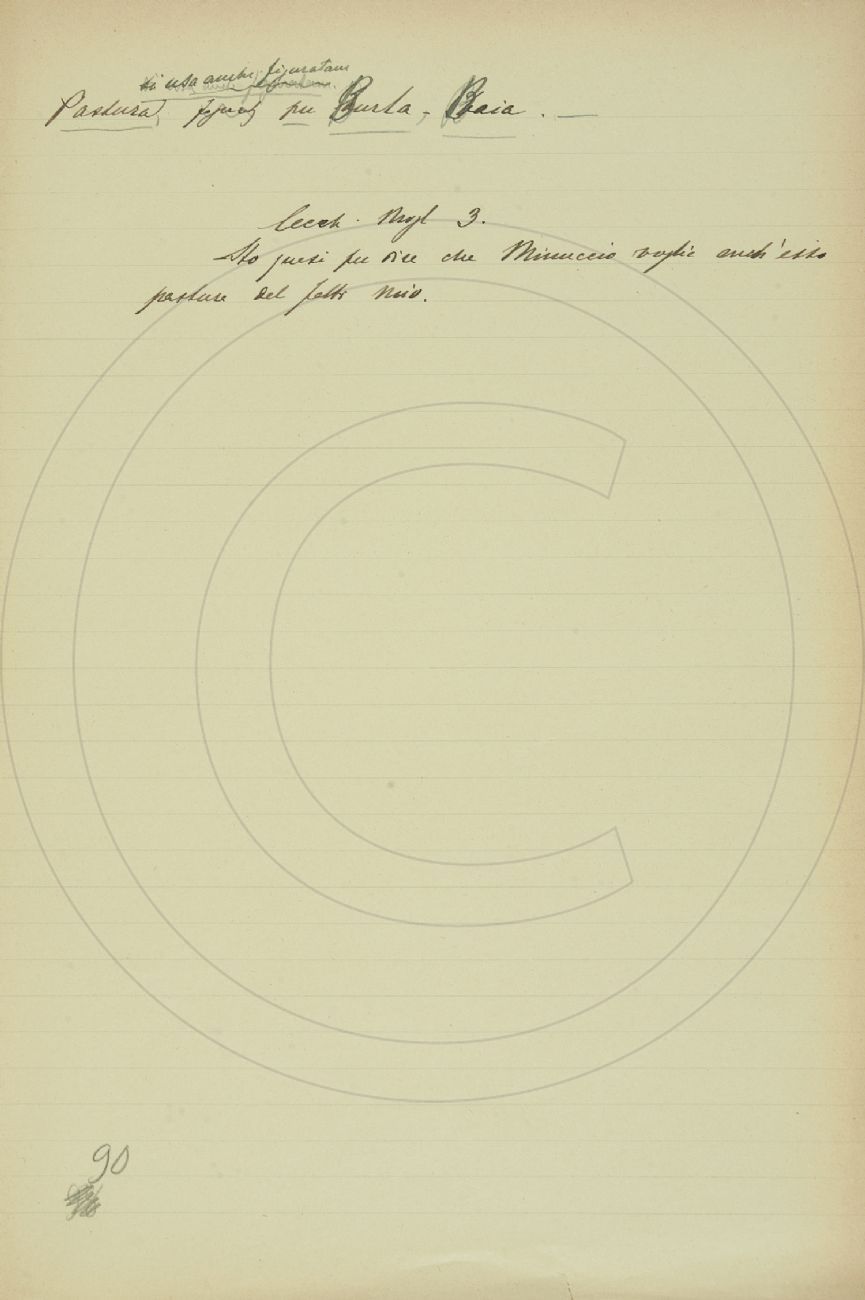 si usa anche figuratam
Pastura, figurat per Burla, Baia. —
Cecch. Mogl 3.
Sto quasi per dire che Minuccio voglie anch'esso
pasture del fatto mio.
90